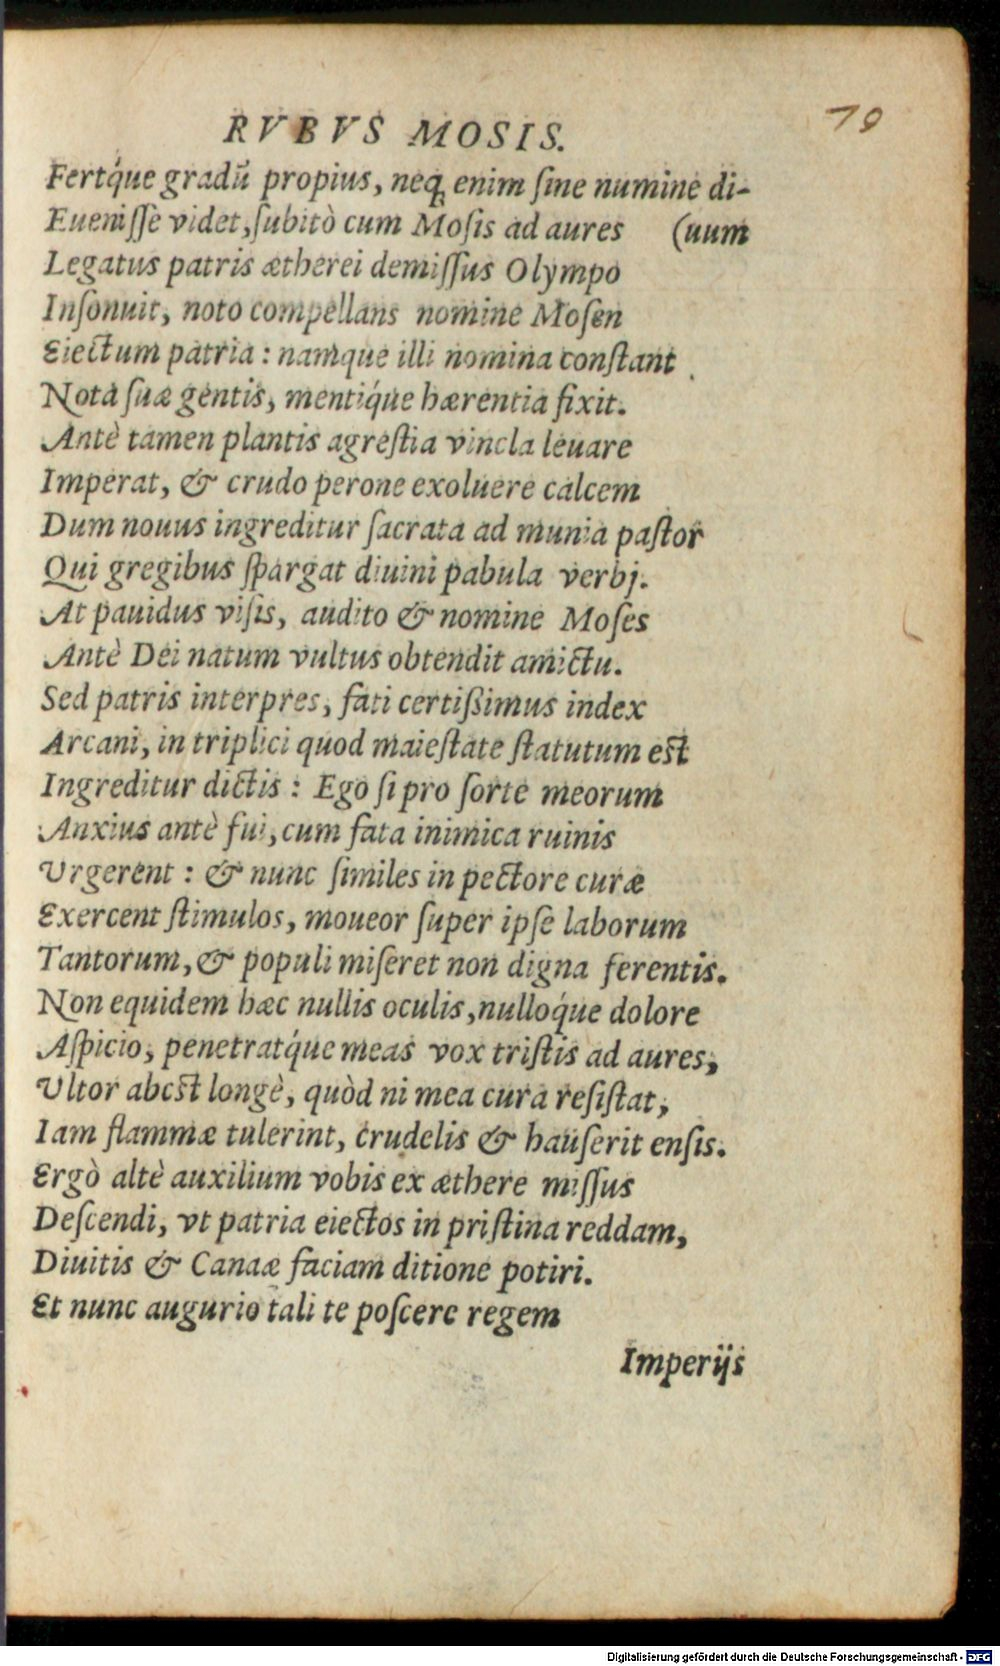 RVBVS MOSIS.
79
Fertq́ue gradū propius, neq; enim ſine numine di-
Eueniſſè videt, ſubitò cum Moſis ad aures (uum
Legatus patris ætherei demiſſus Olympo
Inſonuit, noto compellans nomine Moſen
Eiectum patria: namque illi nomina conſtant
Nota ſuæ gentis, mentiq́ue hærentia fixit.
Antè tamen plantis agreſtia vincla leuare
Imperat, & crudo perone exoluere calcem
Dum nouus ingreditur ſacrata ad munia paſtor
Qui gregibus ſpargat diuini pabula verbj.
At pauidus viſis, audito & nomine Moſes
Antè Dei natum vultus obtendit amictu.
Sed patris interpres, fati certißimus index
Arcani, in triplici quod maieſtate ſtatutum eſt
Ingreditur dictis: Ego ſi pro ſorte meorum
Anxius antè fui, cum fata inimica ruinis
Urgerent: & nunc ſimiles in pectore curæ
Exercent ſtimulos, moueor ſuper ipſe laborum
Tantorum, & populi miſeret non digna ferentis.
Non equidem hæc nullis oculis, nulloq́ue dolore
Aſpicio, penetratq́ue meas vox triſtis ad aures,
Ultor abeſt longè, quòd ni mea cura reſiſtat,
Iam flammæ tulerint, crudelis & hauſerit enſis.
Ergò altè auxilium vobis ex æthere miſſus
Deſcendi, vt patria eiectos in priſtina reddam,
Diuitis & Canaæ faciam ditione potiri.
Et nunc augurio tali te poſcere regem
Imperijs
Digitalisierung gefördert durch die Deutsche Forschungsgemeinschaft - DFG